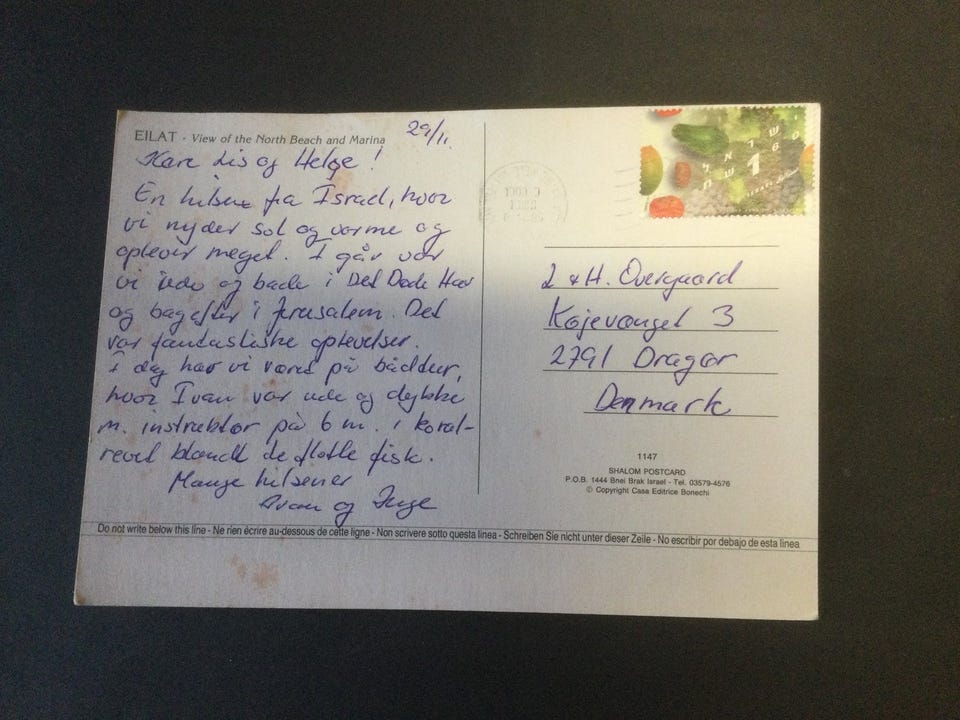 EILAT - View of the North Beach and Marina
29/11.
Kære Lis og Helge!
En hilsen fra Israel, hvor
vi nyder sol og varme og
oplever meget. I går var
vi ude og bade i Det Døde Hav
og bagefter i Jerusalem. Det
var fantastiske oplevelser.
I dag har vi været på bådtur,
hvor Ivan var ude og dykke
m. instruktør på 6 m. i koral-
revet blandt de flotte fisk.
Mange hilsener
Ivan og Inge
1
ישראל
L & H. Overgaard
Køjevænget 3
2791 Dragør
Denmark
1147
SHALOM POSTCARD
P.O.B. 1444 Bnei Brak Israel - Tel. 03579-4576
© Copyright Casa Editrice Bonechi
Do not write below this line - Ne rien écrire au-dessous de cette ligne - Non scrivere sotto questa linea - Schreiben Sie nicht unter dieser Zeile - No escribir por debajo de esta linea